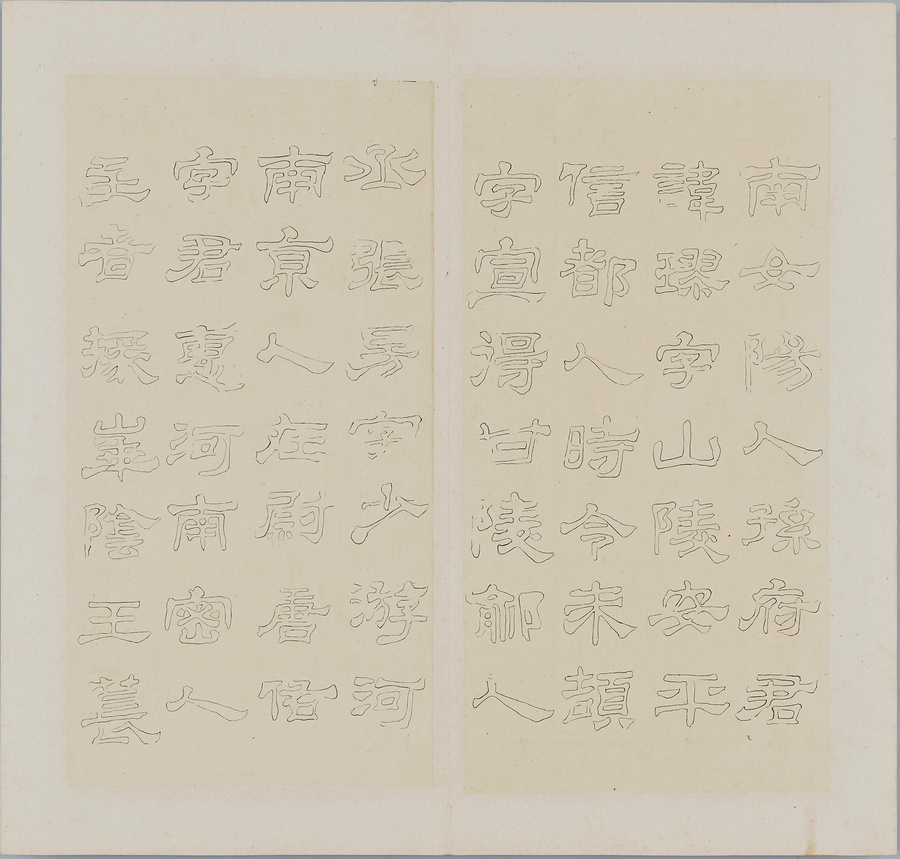 南女陽人孫府君
諱璆字山陵安平
信都人時令朱頡
字宣得甘陵鄃人
丞張房字少游河
南京人左尉唐佑
字君惠河南密人
主者掾華陰王萇